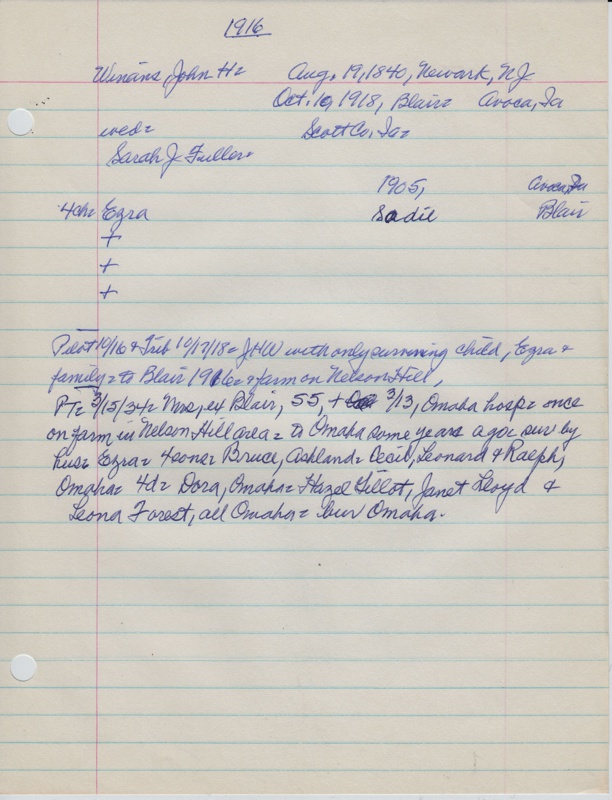 1916
Winans, John H= Aug. 19, 1840, Newark, NJ
Oct. 10, 1918, Blair= Avoca, Ia
wed= Scott Co, Ia=
Sarah J. Fuller=
1905, Avoca, Ia
4ch= Ezra Sadie Blair
+
+
+
Pilot 10/16 & Trib 10/17/18= JHW with only surviving child, Ezra &
family= to Blair 1916= & farm on Nelson Hill,
PT= 3/15/34= Mrs, ex Blair, 55, + 3/13, Omaha hosp= once
on farm in Nelson Hill area= to Omaha some years ago= surv by
hus= Ezra= 4sons= Bruce, Ashland= Cecil, Leonard & Ralph,
Omaha= 4d= Dora, Omaha= Hazel Gillot, Janet Lloyd &
Leona Forest, all Omaha= bur Omaha.